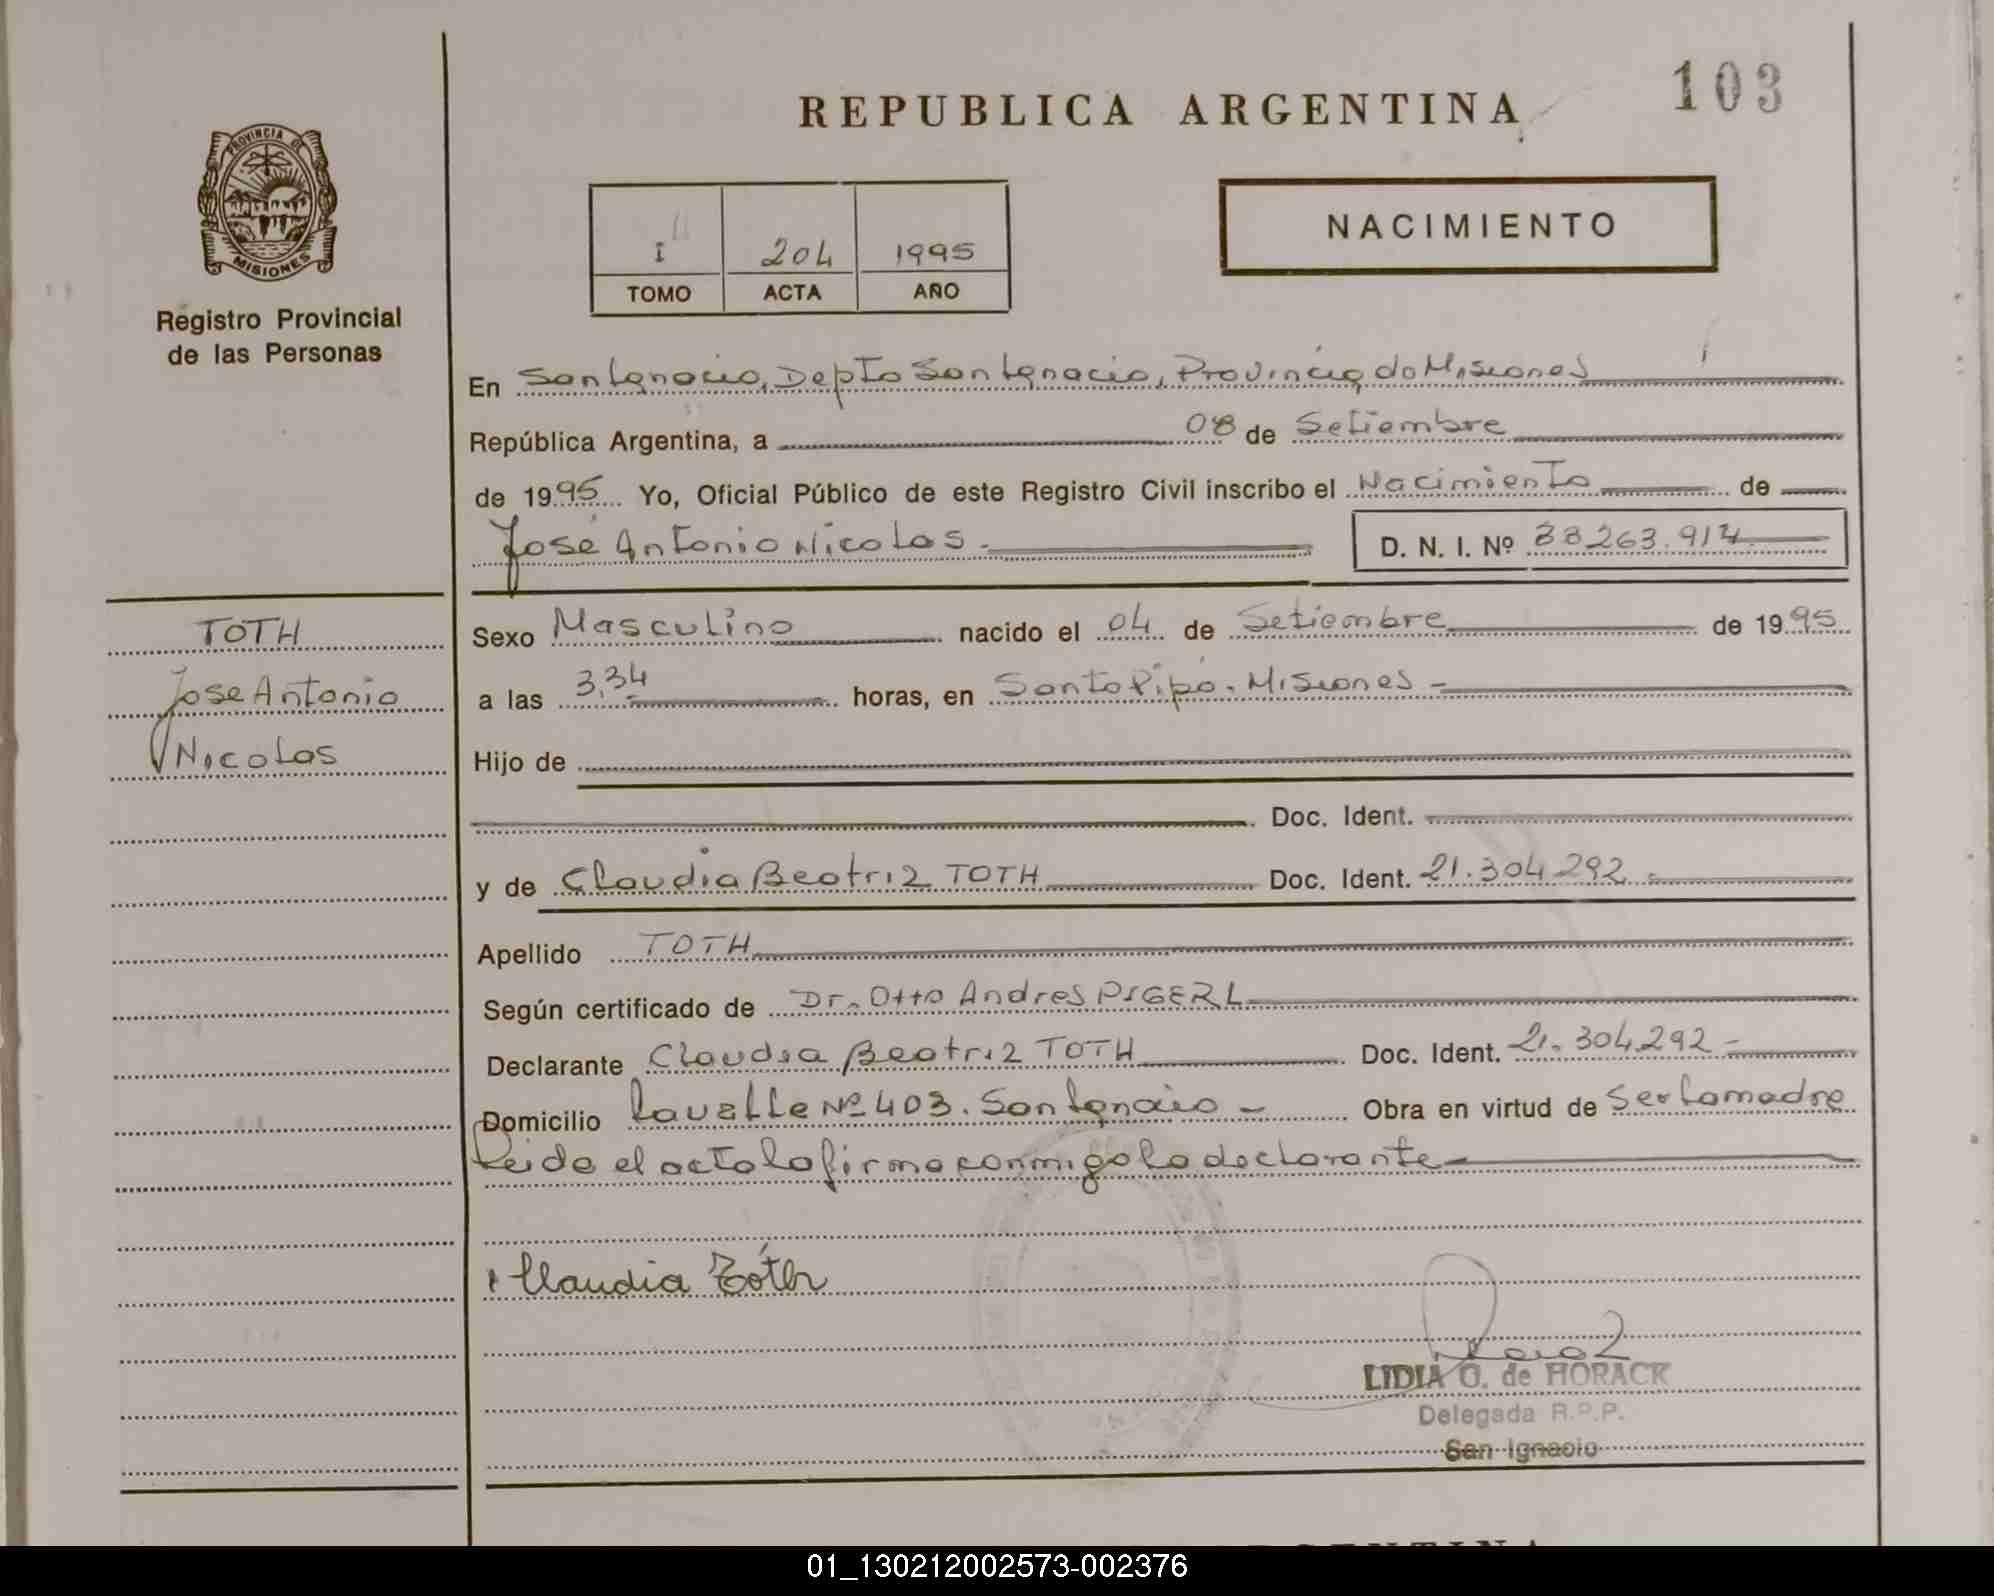 103
REPUBLICA ARGENTINA
PROVINCIA DE
MISIONES
Registro Provincial
de las Personas
NACIMIENTO
I 204 1995
TOMO ACTA AÑO
En San Ignacio, Depto San Ignacio, Provincia de Misiones
República Argentina, a 08 de Setiembre
de 1995 Yo, Oficial Público de este Registro Civil inscribo el Nacimiento de
José Antonio Nicolas.- D. N. I. Nº 38263.914
TOTH
Jose Antonio
Nicolas
Sexo Masculino nacido el 04 de Setiembre de 1995
a las 3,34 horas, en Santo Pipó. Misiones -
Hijo de
Doc. Ident.
y de Claudia Beatriz TOTH Doc. Ident. 21.304.292.-
Apellido TOTH
Según certificado de Dr. Otto Andres PIGERL
Declarante Claudia Beatriz TOTH Doc. Ident. 21.304.292 -
Domicilio Lavalle Nº 403. San Ignacio - Obra en virtud de Ser la madre
Leida el acta la firma conmigo la declarante
Claudia Tóth
LIDIA O. de HORACK
Delegada R.P.P.
San Ignacio
01_130212002573-002376